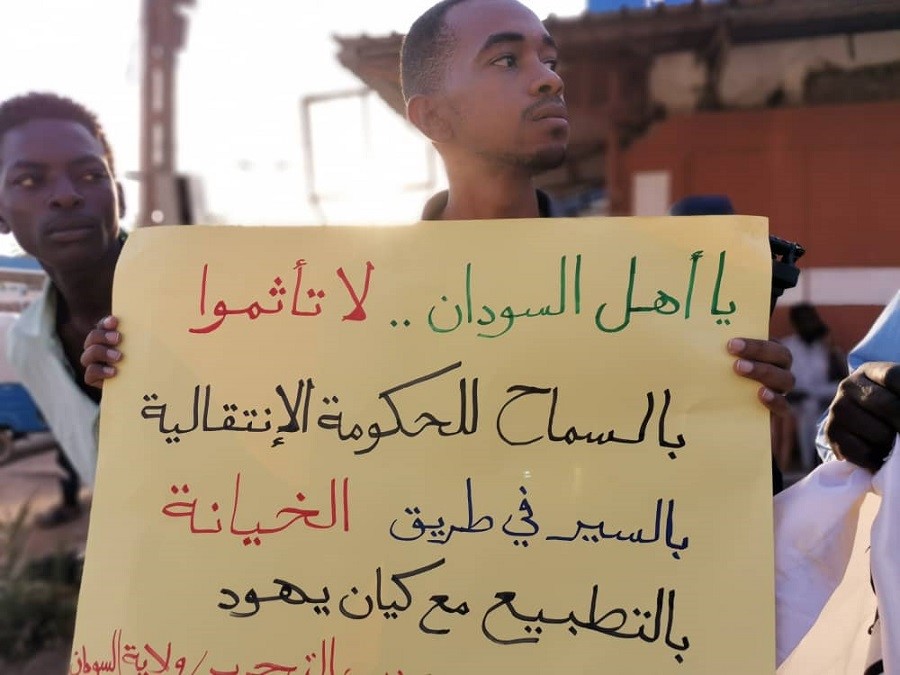 يا أهل السودان .. لا تأثموا
بالسماح للحكومة الإنتقالية
بالسير في طريق الخيانة
بالتطبيع مع كيان يهود
التحرير / ولاية السودان